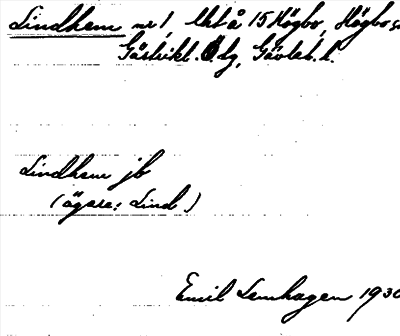 Lindhem nr 1, Utså 15 Högbo, Högbo s
Gästrikl. Ö. dg, Gävleb. l.
Lindhem jb
(ägare: Lind)
Emil Lenhagen 1930